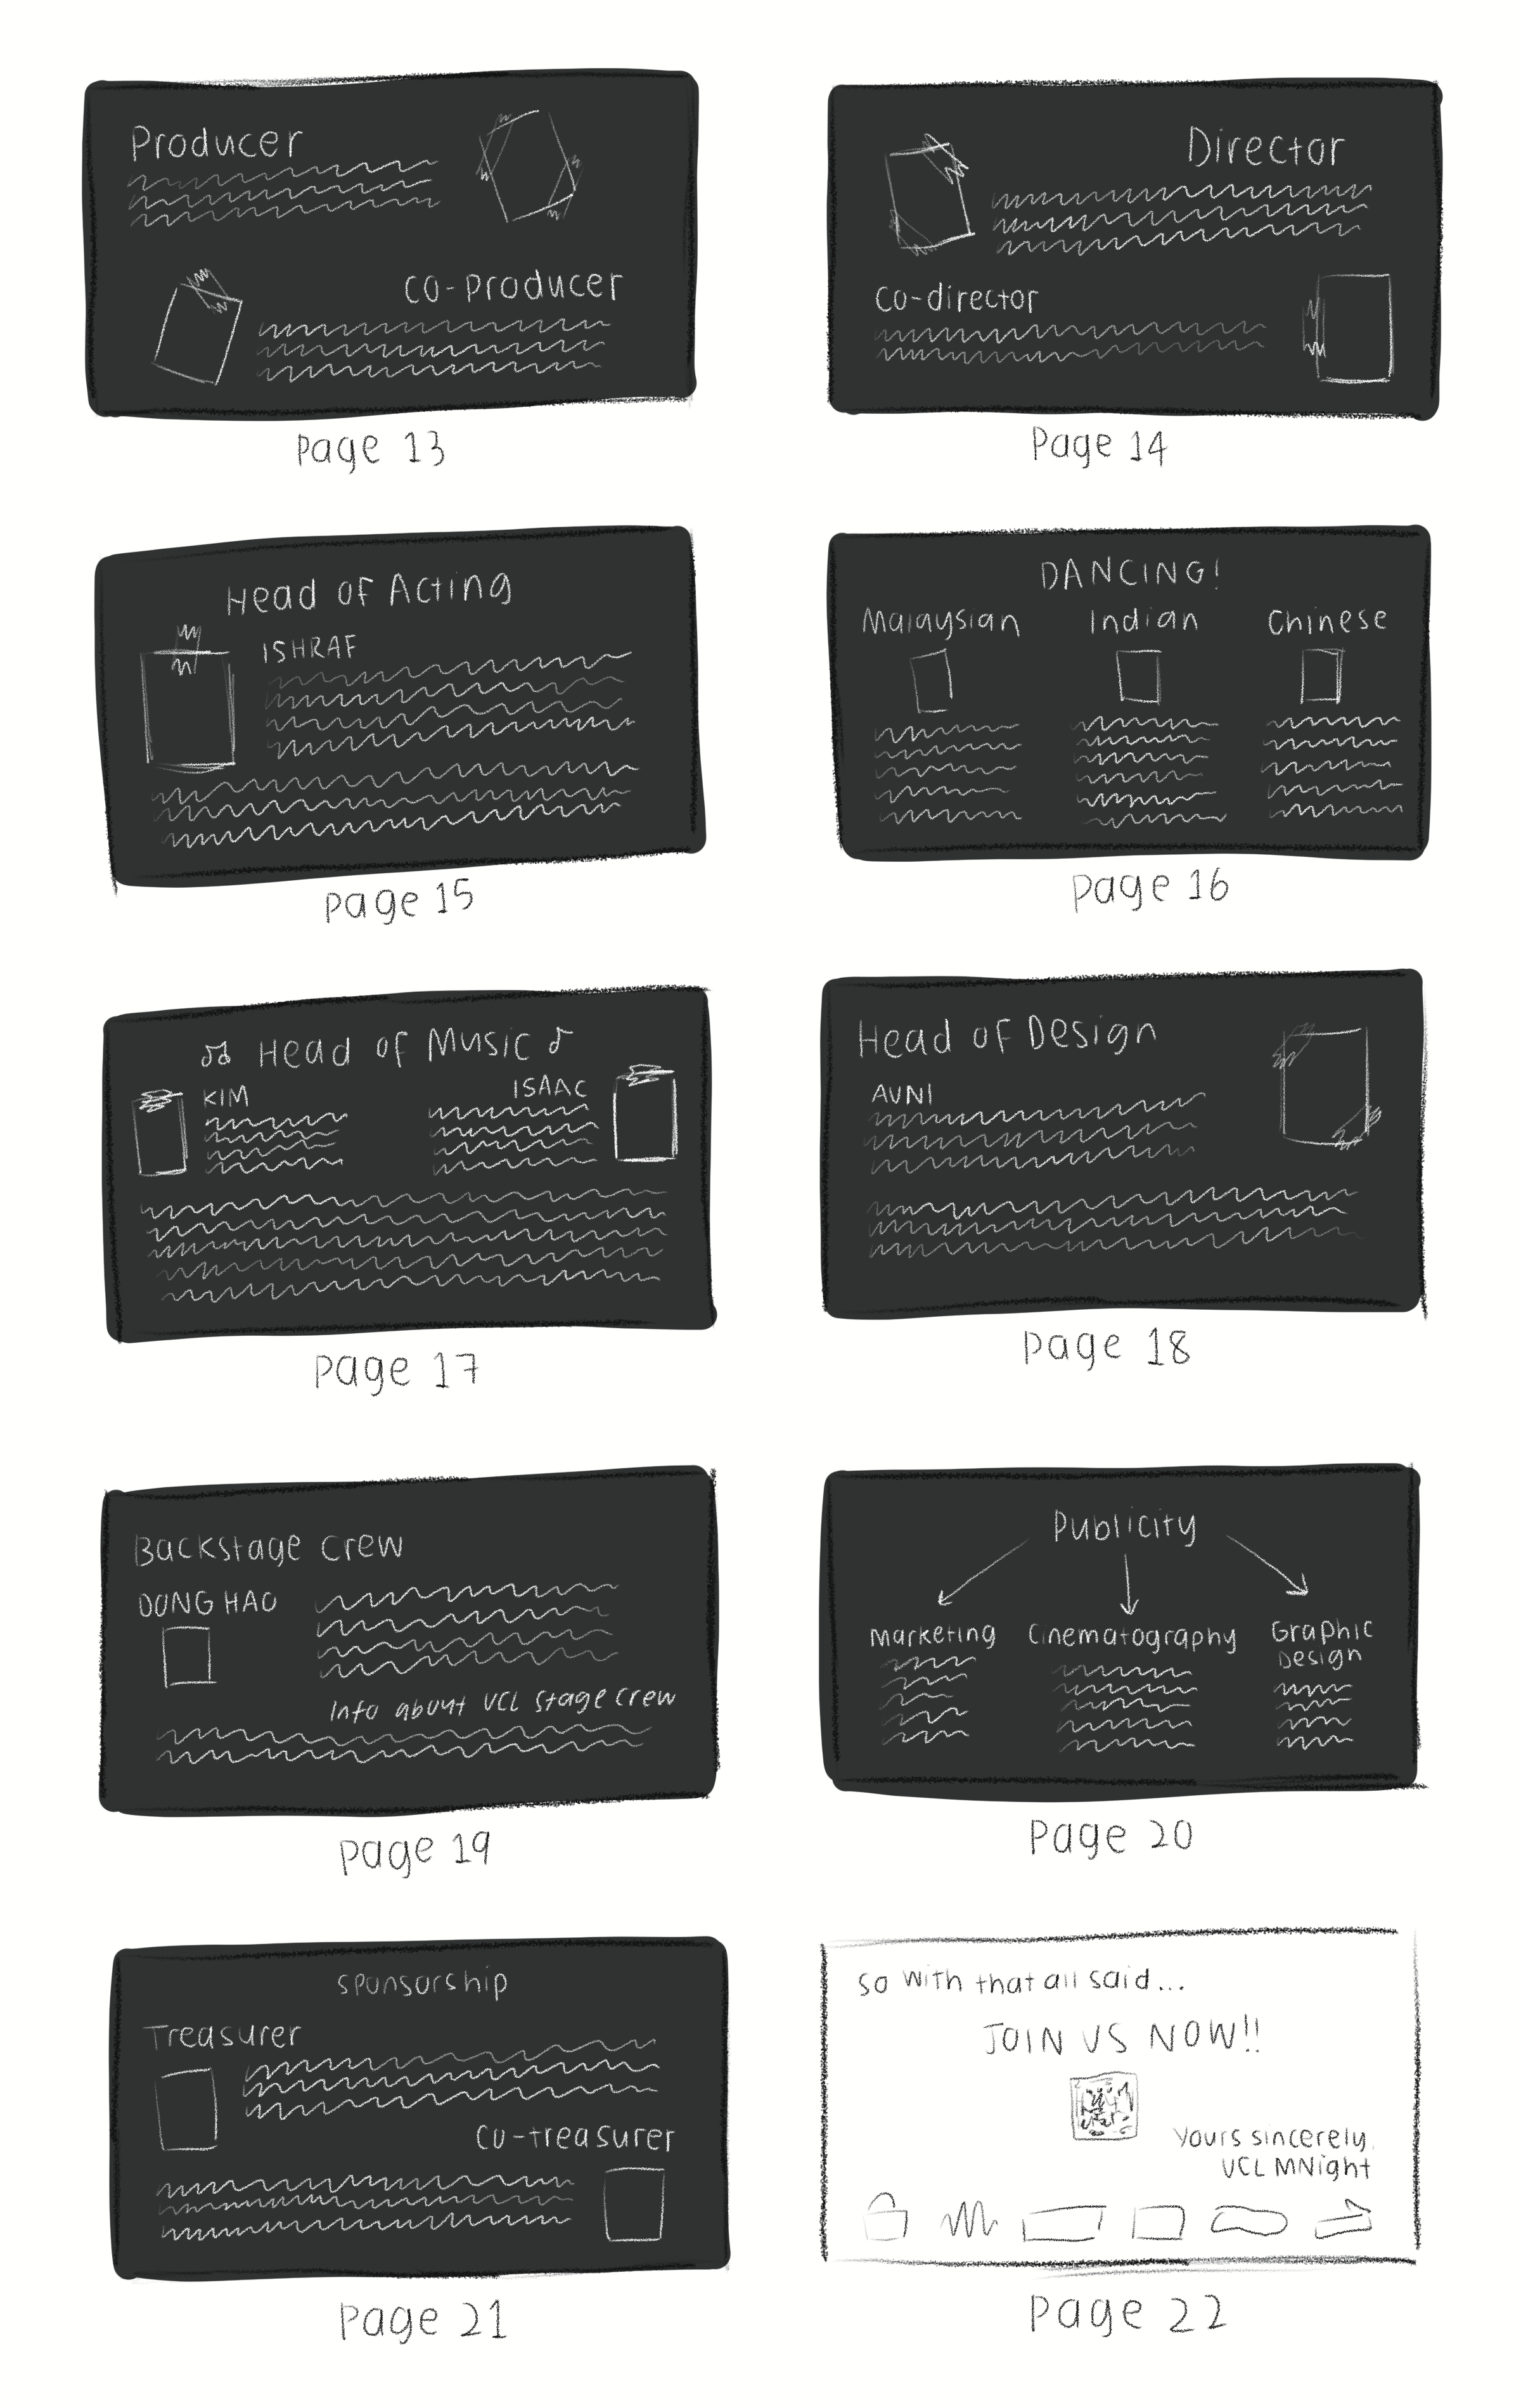 Producer
Co-Producer
Page 13
Director
Co-director
Page 14
Head of Acting
ISHRAF
Page 15
DANCING!
Malaysian Indian Chinese
Page 16
Head of Music
KIM
ISAAC
Page 17
Head of Design
AUNI
Page 18
Backstage Crew
DONG HAO
Info about UCL Stage Crew
Page 19
Publicity
Marketing Cinematography Graphic
Design
Page 20
Sponsorship
Treasurer
Co-treasurer
Page 21
So with that all said...
JOIN US NOW!!
Yours sincerely,
UCL MNight
Page 22